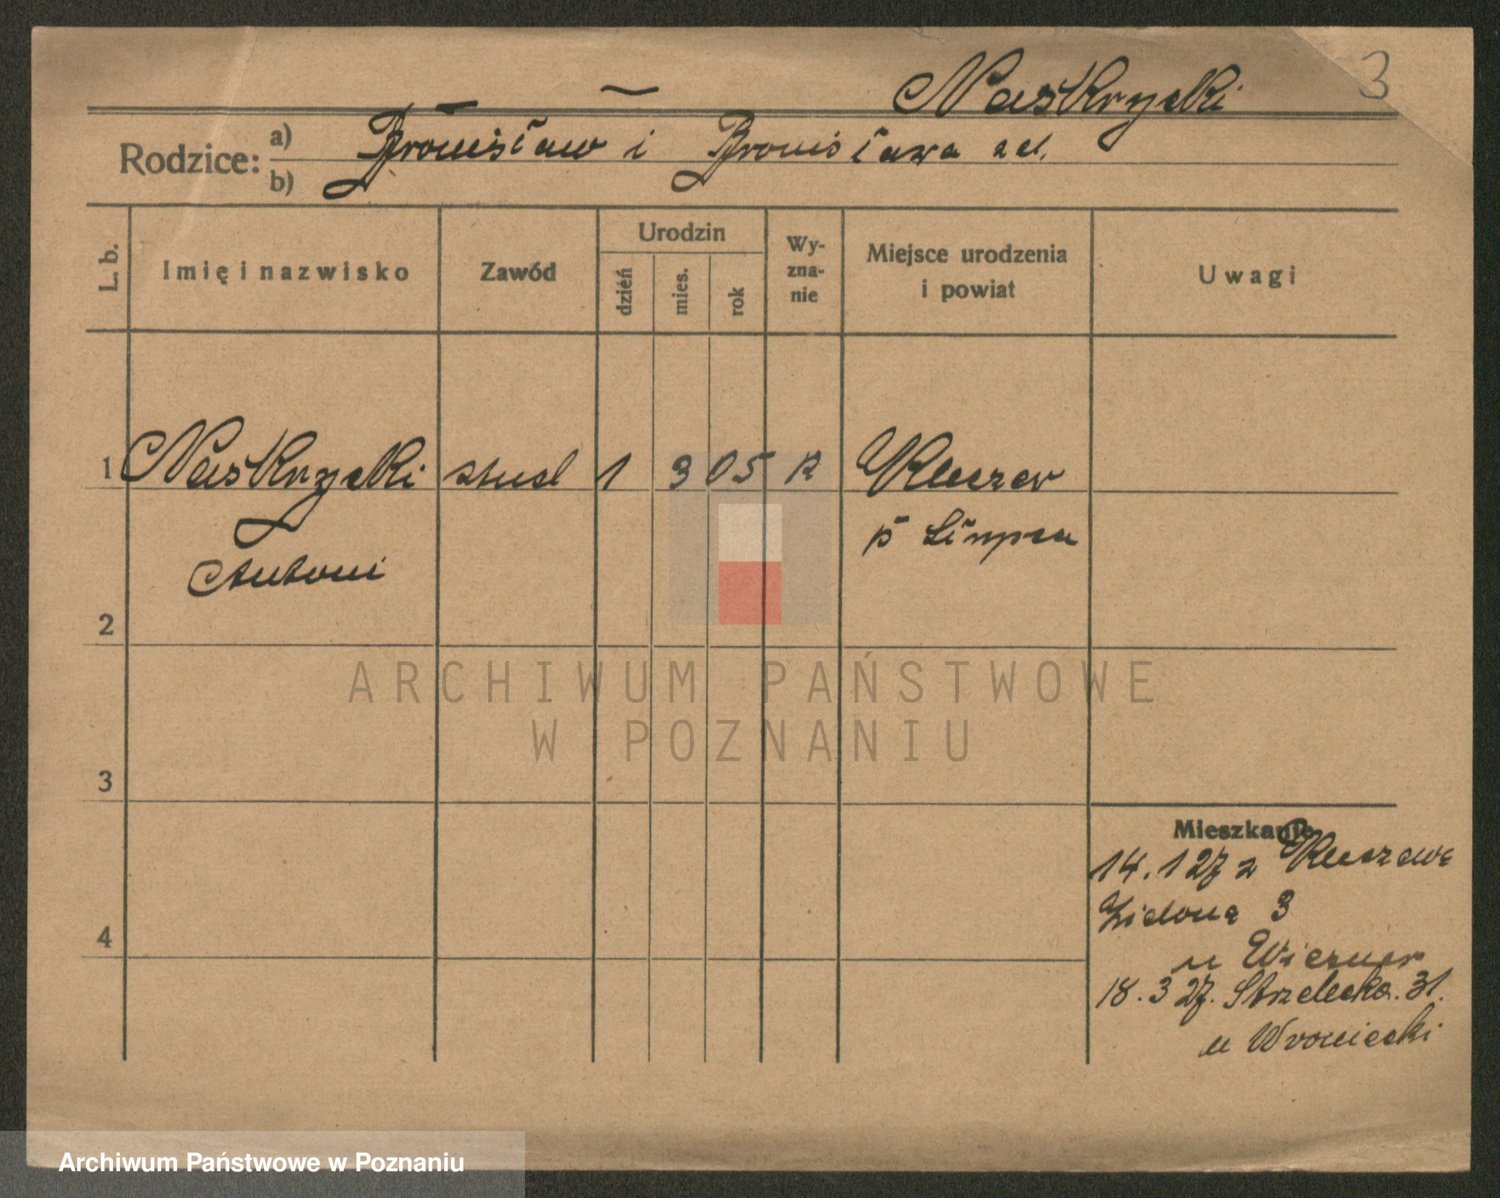 3
Naskrzycki
Rodzice: a) Bronisław i Bronisława
b)
L. b. Imię i nazwisko Zawód Urodzin dzień mies. rok Wy-zna-nie Miejsce urodzenia i powiat Uwagi
1 Naskrzycki stud 1 3 05 R Kleczew
Antoni p Słupca
2
3
4
Mieszkanie
14.1 27 z Kleczewa
Zielona 3
u Wiezner
18.3 27. Strzelecka. 31.
u Wroniecki
ARCHIWUM PAŃSTWOWE
W POZNANIU
Archiwum Państwowe w Poznaniu